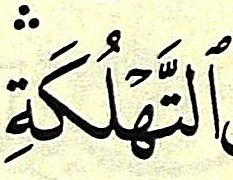 ٱلتَّهۡلُكَةِۛ